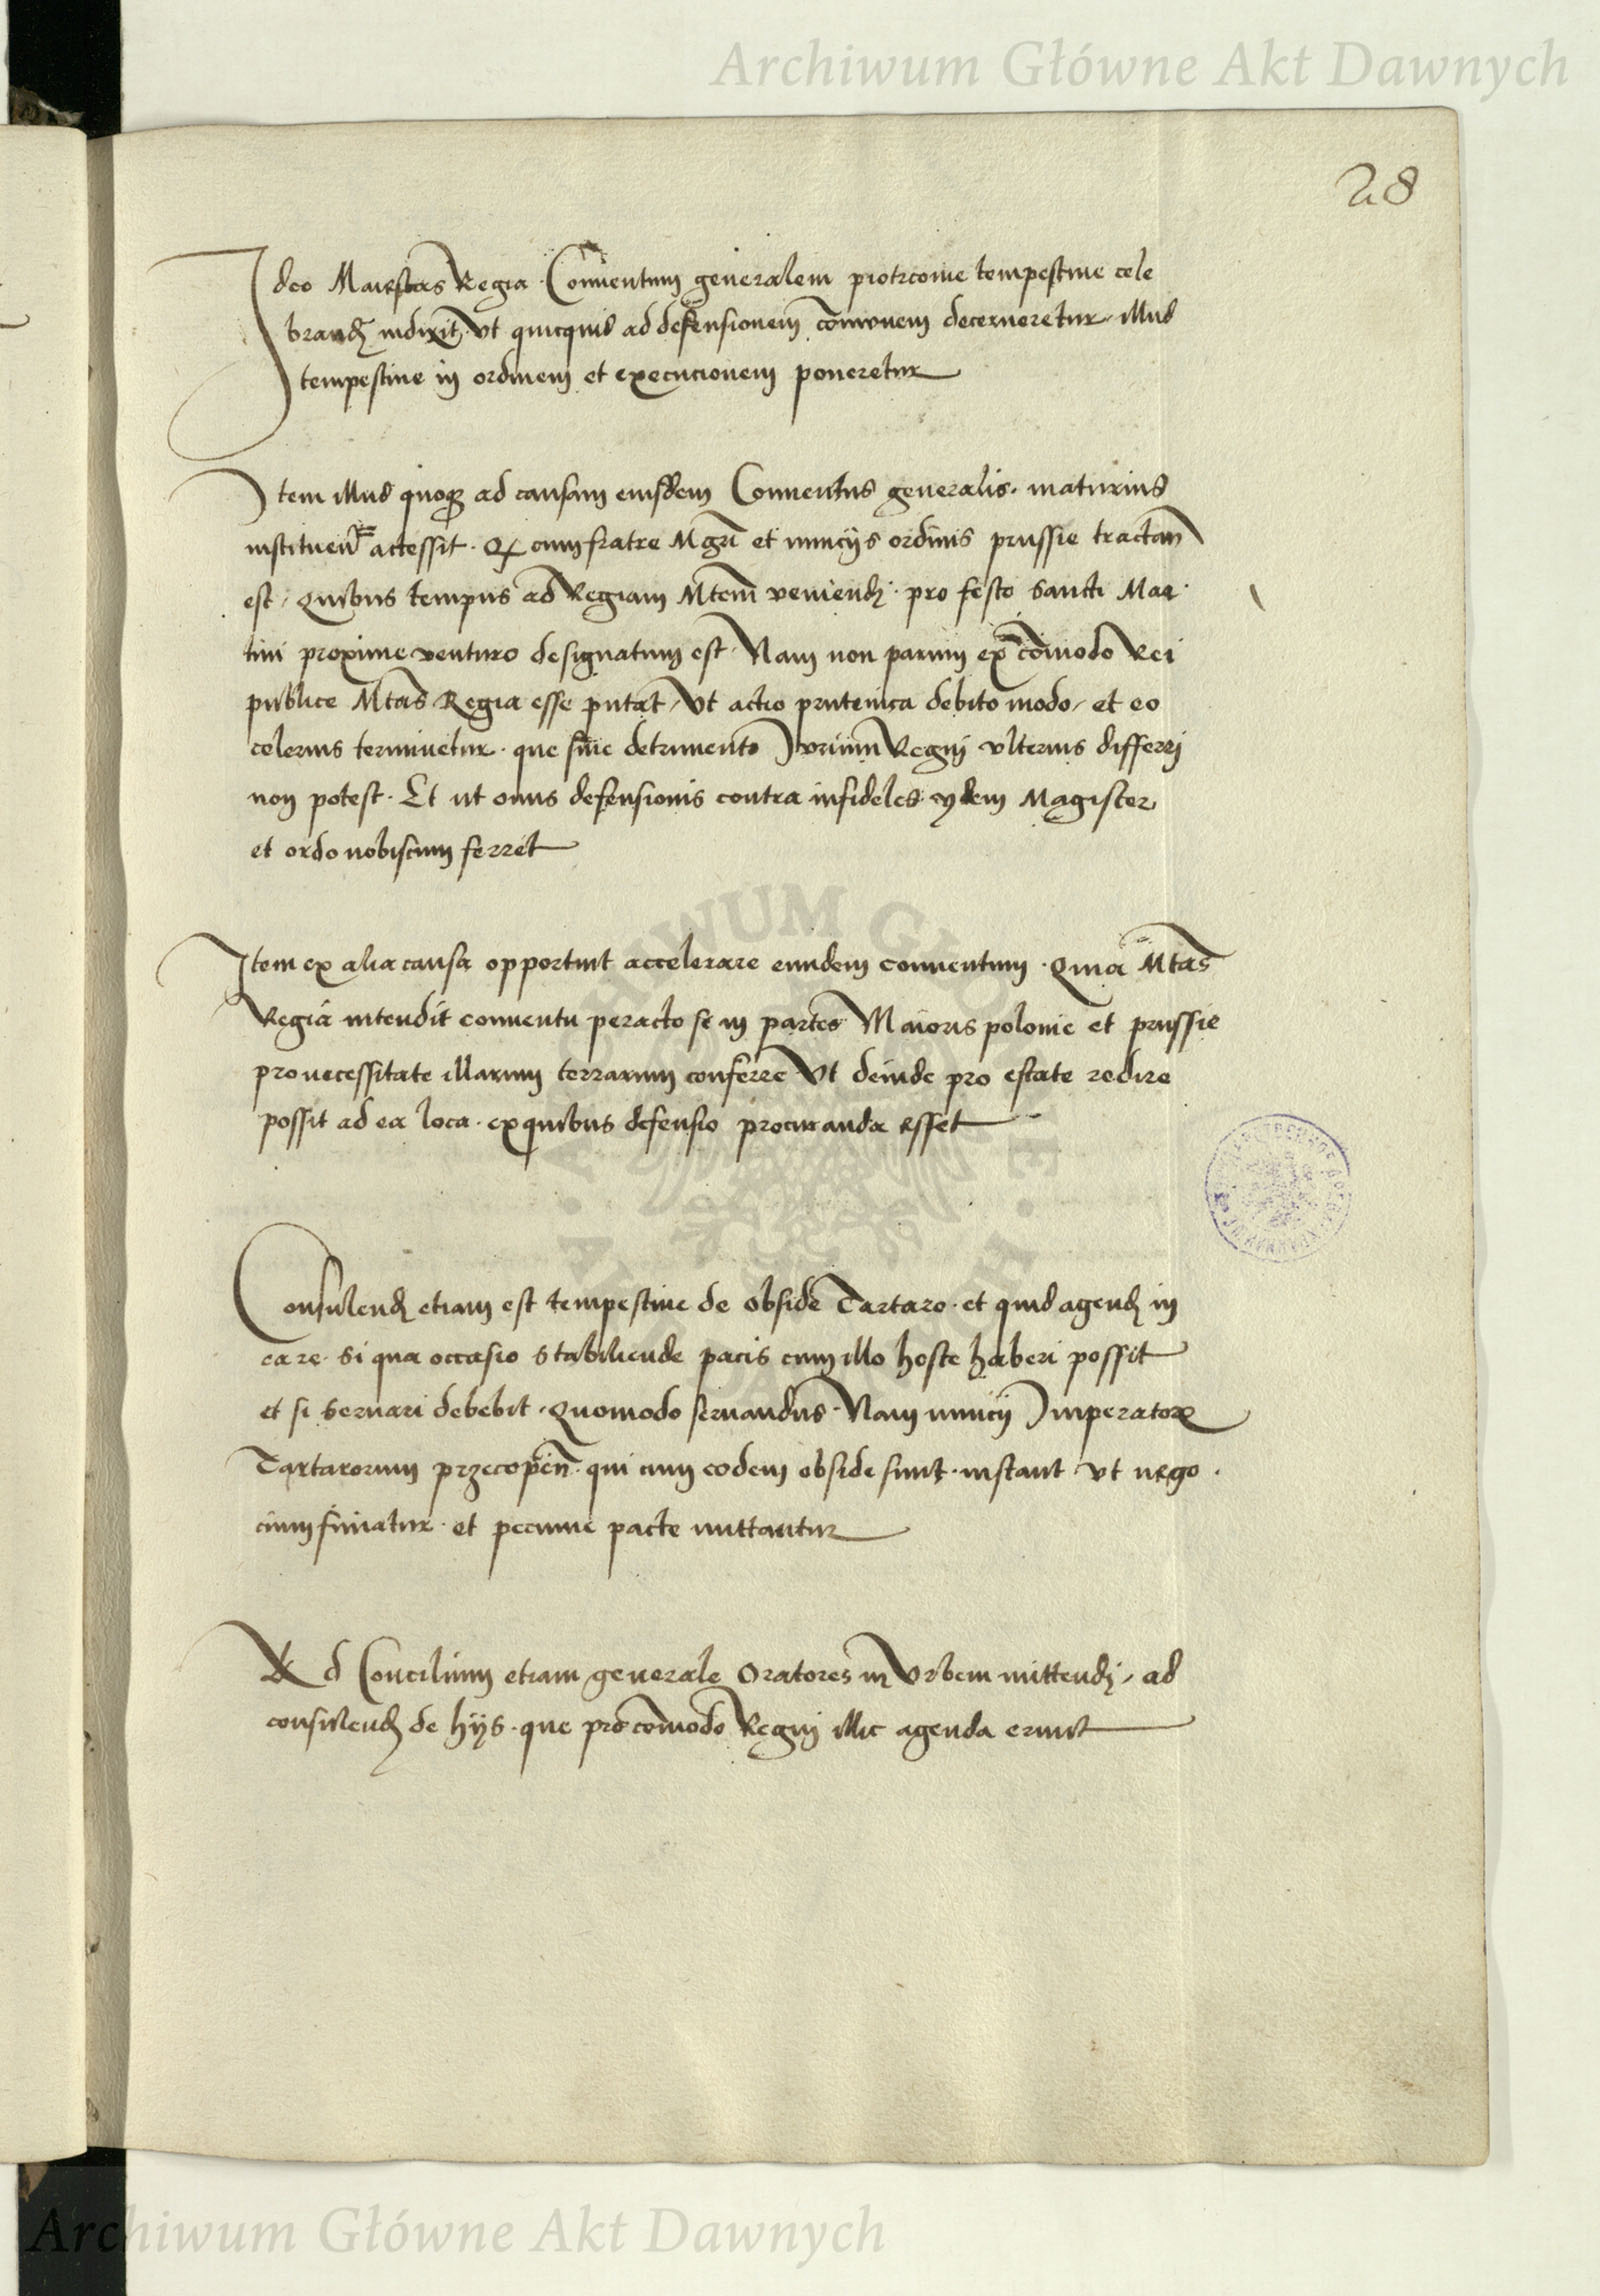 Archiwum Główne Akt Dawnych
28
Ideo Maiestas Regia Conventum generalem piotrcovie tempestive cele
brand indixit, Ut quicquid ad defensionem comunem decerneretur, illud
tempestive in ordinem et execucionem poneretur
Item illud quoq ad causam eiusdem Conventus generalis. maturius
instituend accessit. Q cum fratre Mgri et nuncijs ordinis prussie tractan
est, Quibus tempus ad Regiam Mtem veniendi. pro festo Sancti Mar
tini proxime venturo designatum est. Nam non parum ex comodo Rei
publice Mtas Regia esse putat, Ut actio prutenica debito modo, et eo
celerius terminetur. que sine detrimento Iurium Regni ulterius differri
non potest. Et ut onus defensionis contra infideles ydem Magister
et ordo nobiscum ferret
Item ex alia causa opportuit accelerare eundem conventum. Quia Mtas
Regia intendit conventu peracto se in partes Maioris polonie et prussie
pro necessitate illarum terrarum conferre Ut deinde pro estate redire
possit ad ea loca. ex quibus defensio procuranda esset
Consulend etiam est tempestive de obside Tartaro. et quid agend in
ea re. Si qua occasio stabiliende pacis cum illo hoste haberi possit
et si servari debebit. Quomodo servandus. Nam nuncij Imperator
Tartarorum przecopen. qui cum eodem obside sunt. instant Ut nego
cium finiatur. et pecunie pacte mittantur
Ad Concilium etiam generale Oratores in Urbem mittendi, ad
consulend de hijs. que pro comodo Regni illic agenda erunt
Archiwum Główne Akt Dawnych